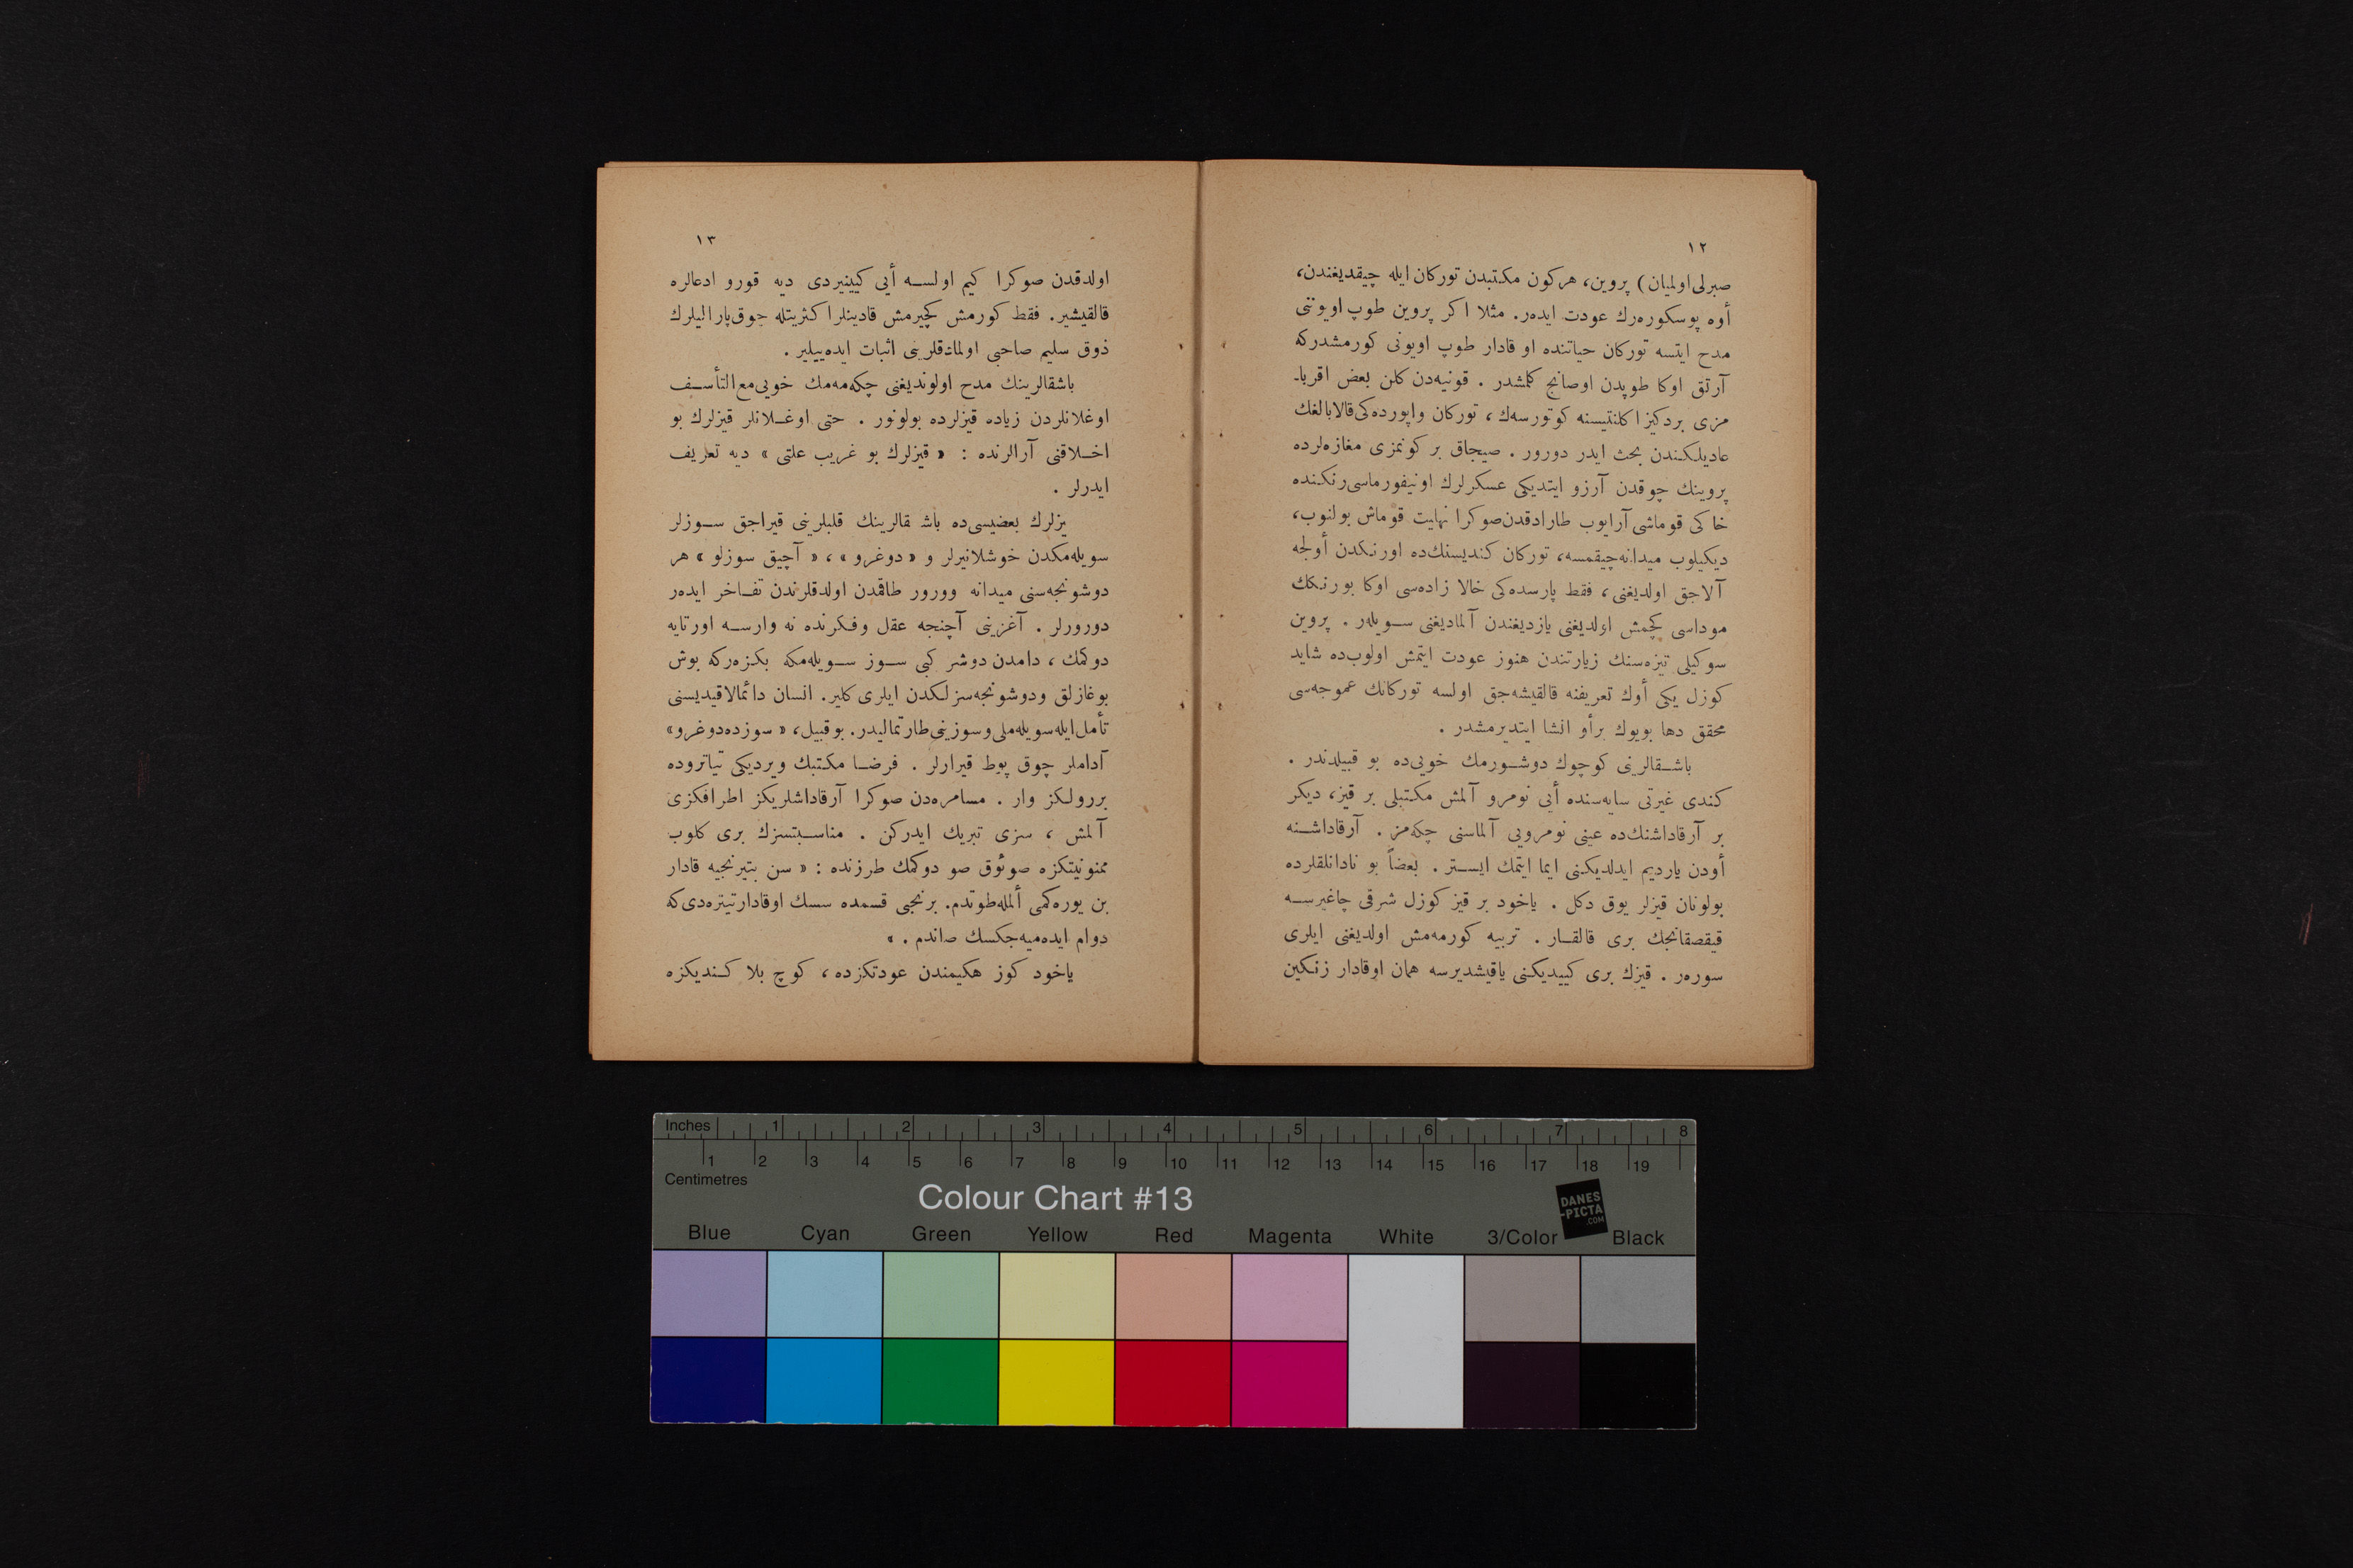 ١٢
صبرلی اولمیان) پروین، هركون مكتبدن توركان ایله چیقدیغندن،
أوه پوسكوره‌رك عودت ایده‌ر. مثلا اكر پروین طوپ اویوننی
مدح ایتسه توركان حیاتنده او قادار طوپ اویونی كورمشدركه
آرتق اوكا طوپدن اوصانج كلمشدر . قونیه‌دن كلن بعض اقربا-
مزی بردكیز اكلنتیسنه كوتورسه‌ك ، توركان واپورده‌كی قالابالغك
عادیلكندن بحث ایدر دورور . صیجاق بر كونمزی مغازه‌لرده
پروینك چوقدن آرزو ایتدیكی عسكرلرك اونیفورماسی رنكنده
خاكی قوماشی آرایوب طارادقدن صوكرا نهایت قوماش بولنوب،
دیكیلوب میدانه چیقمسه، توركان كندیسنك‌ده اورنكدن أولجه
آلاجق اولدیغنی ، فقط پارسده‌كی خالا زاده‌سی اوكا بورنكك
موداسی كچمش اولدیغنی یازدیغندن آلمادیغنی سـویلر . پروین
سوكیلی تیزه‌سنك زیارتندن هنوز عودت ایتمش اولوب‌ده شاید
كوزل یكی أوك تعریفنه قالقیشه‌جق اولسه توركانك عموجه‌سی
محقق دها بویوك برأو انشا ایتدیرمشدر .
باشـقالرینی كوچوك دوشـورمك خویی‌ده بو قبیلدندر .
كندی غیرتی سایه‌سنده أیی نومرو آلمش مكتبلی بر قیز، دیكر
بر آرقاداشنك‌ده عینی نومرویی آلماسنی چكه‌مز . آرقاداشـنه
أودن یاردیم ایدلدیكنی ایما ایتمك ایسـتر . بعضاً بو نادانلقلرده
بولونان قیزلر یوق دكل . یاخود بر قیز كوزل شرقی چاغیرسـه
قیقصقانجك بری قالقـار . تربیه كورمه‌مش اولدیغنی ایلری
سوره‌ر . قیزك بری كییدیكنی یاقیشدیرسه همان اوقادار زنكین
١٣
اولدقدن صوكرا كیم اولسـه أیی كیینیردی دیه قورو ادعالره
قالقیشیر. فقط كورمش كچیرمش قادینلر اكثریتله چوق پارالیلرك
ذوق سلیم صاحبی اولمادقلرینی اثبات ایده‌بیلیر .
باشقالرینك مدح اولوندیغنی چكه‌مه‌مك خویی مع التأسـف
اوغلانلردن زیاده قیزلرده بولونور . حتی اوغـلانلر قیزلرك بو
اخـلاقنی آرالرنده : « قیزلرك بو غریب علتی » دیه تعریف
ایدرلر .
یزلرك بعضیسی‌ده باشقالرینك قلبلرینی قیراجق سـوزلر
سویله‌مكدن خوشلانیرلر و « دوغرو » ، « آچیق سوزلو » هر
دوشونجه‌سنی میدانه وورور طاقمدن اولدقلرندن تفـاخر ایده‌ر
دورورلر . آغزینی آچنجه عقل وفكرنده نه وارسـه اورتایه
دوكمك ، دامدن دوشر كبی سـوز سـویله‌مكه بكزه‌ركه بوش
بوغازلق ودوشونجه‌سزلكدن ایلری كلیر. انسان دائما لاقیدیسنی
تأمل ایله سویله‌ملی وسوزینی طارتمالیدر. بو قبیل، « سوزده‌دوغرو »
آداملر چوق پوط قیرارلر . فرضـا مكتبك ویردیكی تیاتروده
بررولكز وار . مسامره‌دن صوكرا آرقاداشلریكز اطرافكزی
آلمش ، سزی تبریك ایدركن . مناسـبتسزك بری كلوب
ممنونیتكزه صوئوق صو دوكمك طرزنده : « سن بتیرنجیه قادار
بن یوره‌كمی ألمله‌طوتدم. برنجی قسمده سسك اوقادارتیتره‌دی‌كه
دوام ایده‌میه‌جكسك صاندم . »
یاخود كوز هكیمندن عودتكزده ، كوچ بلا كـندیكزه
Inches 1 2 3 4 5 6 7 8
1 2 3 4 5 6 7 8 9 10 11 12 13 14 15 16 17 18 19
Centimetres
Colour Chart #13
DANES
-PICTA
.COM
Blue Cyan Green Yellow Red Magenta White 3/Color Black